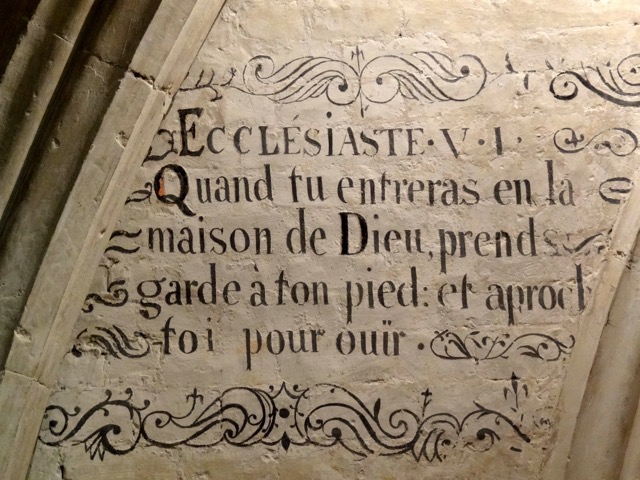 ECCLÉSIASTE·V·I·
Quand tu entreras en la
maison de Dieu, prends
garde à ton pied: et aproch
toi pour ouïr.